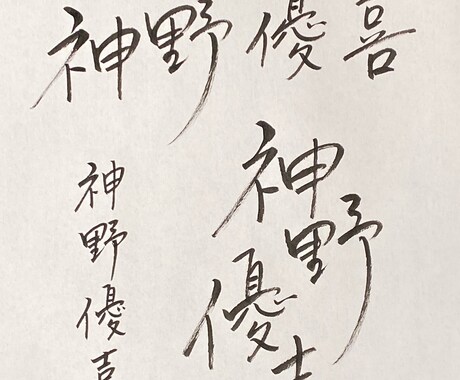 神野優喜
神野優
神野優